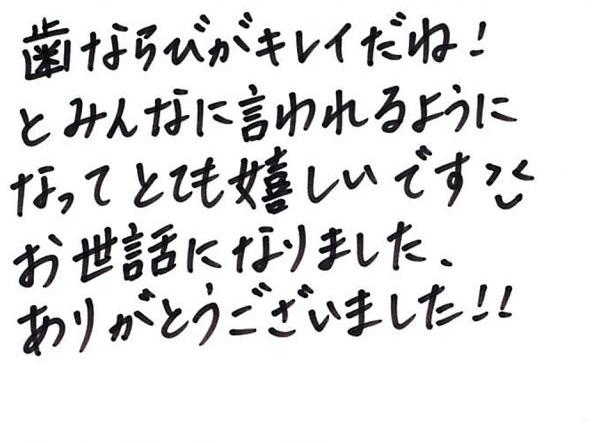 歯ならびがキレイだね！
とみんなに言われるように
なってとても嬉しいです><
お世話になりました、
ありがとうございました！！